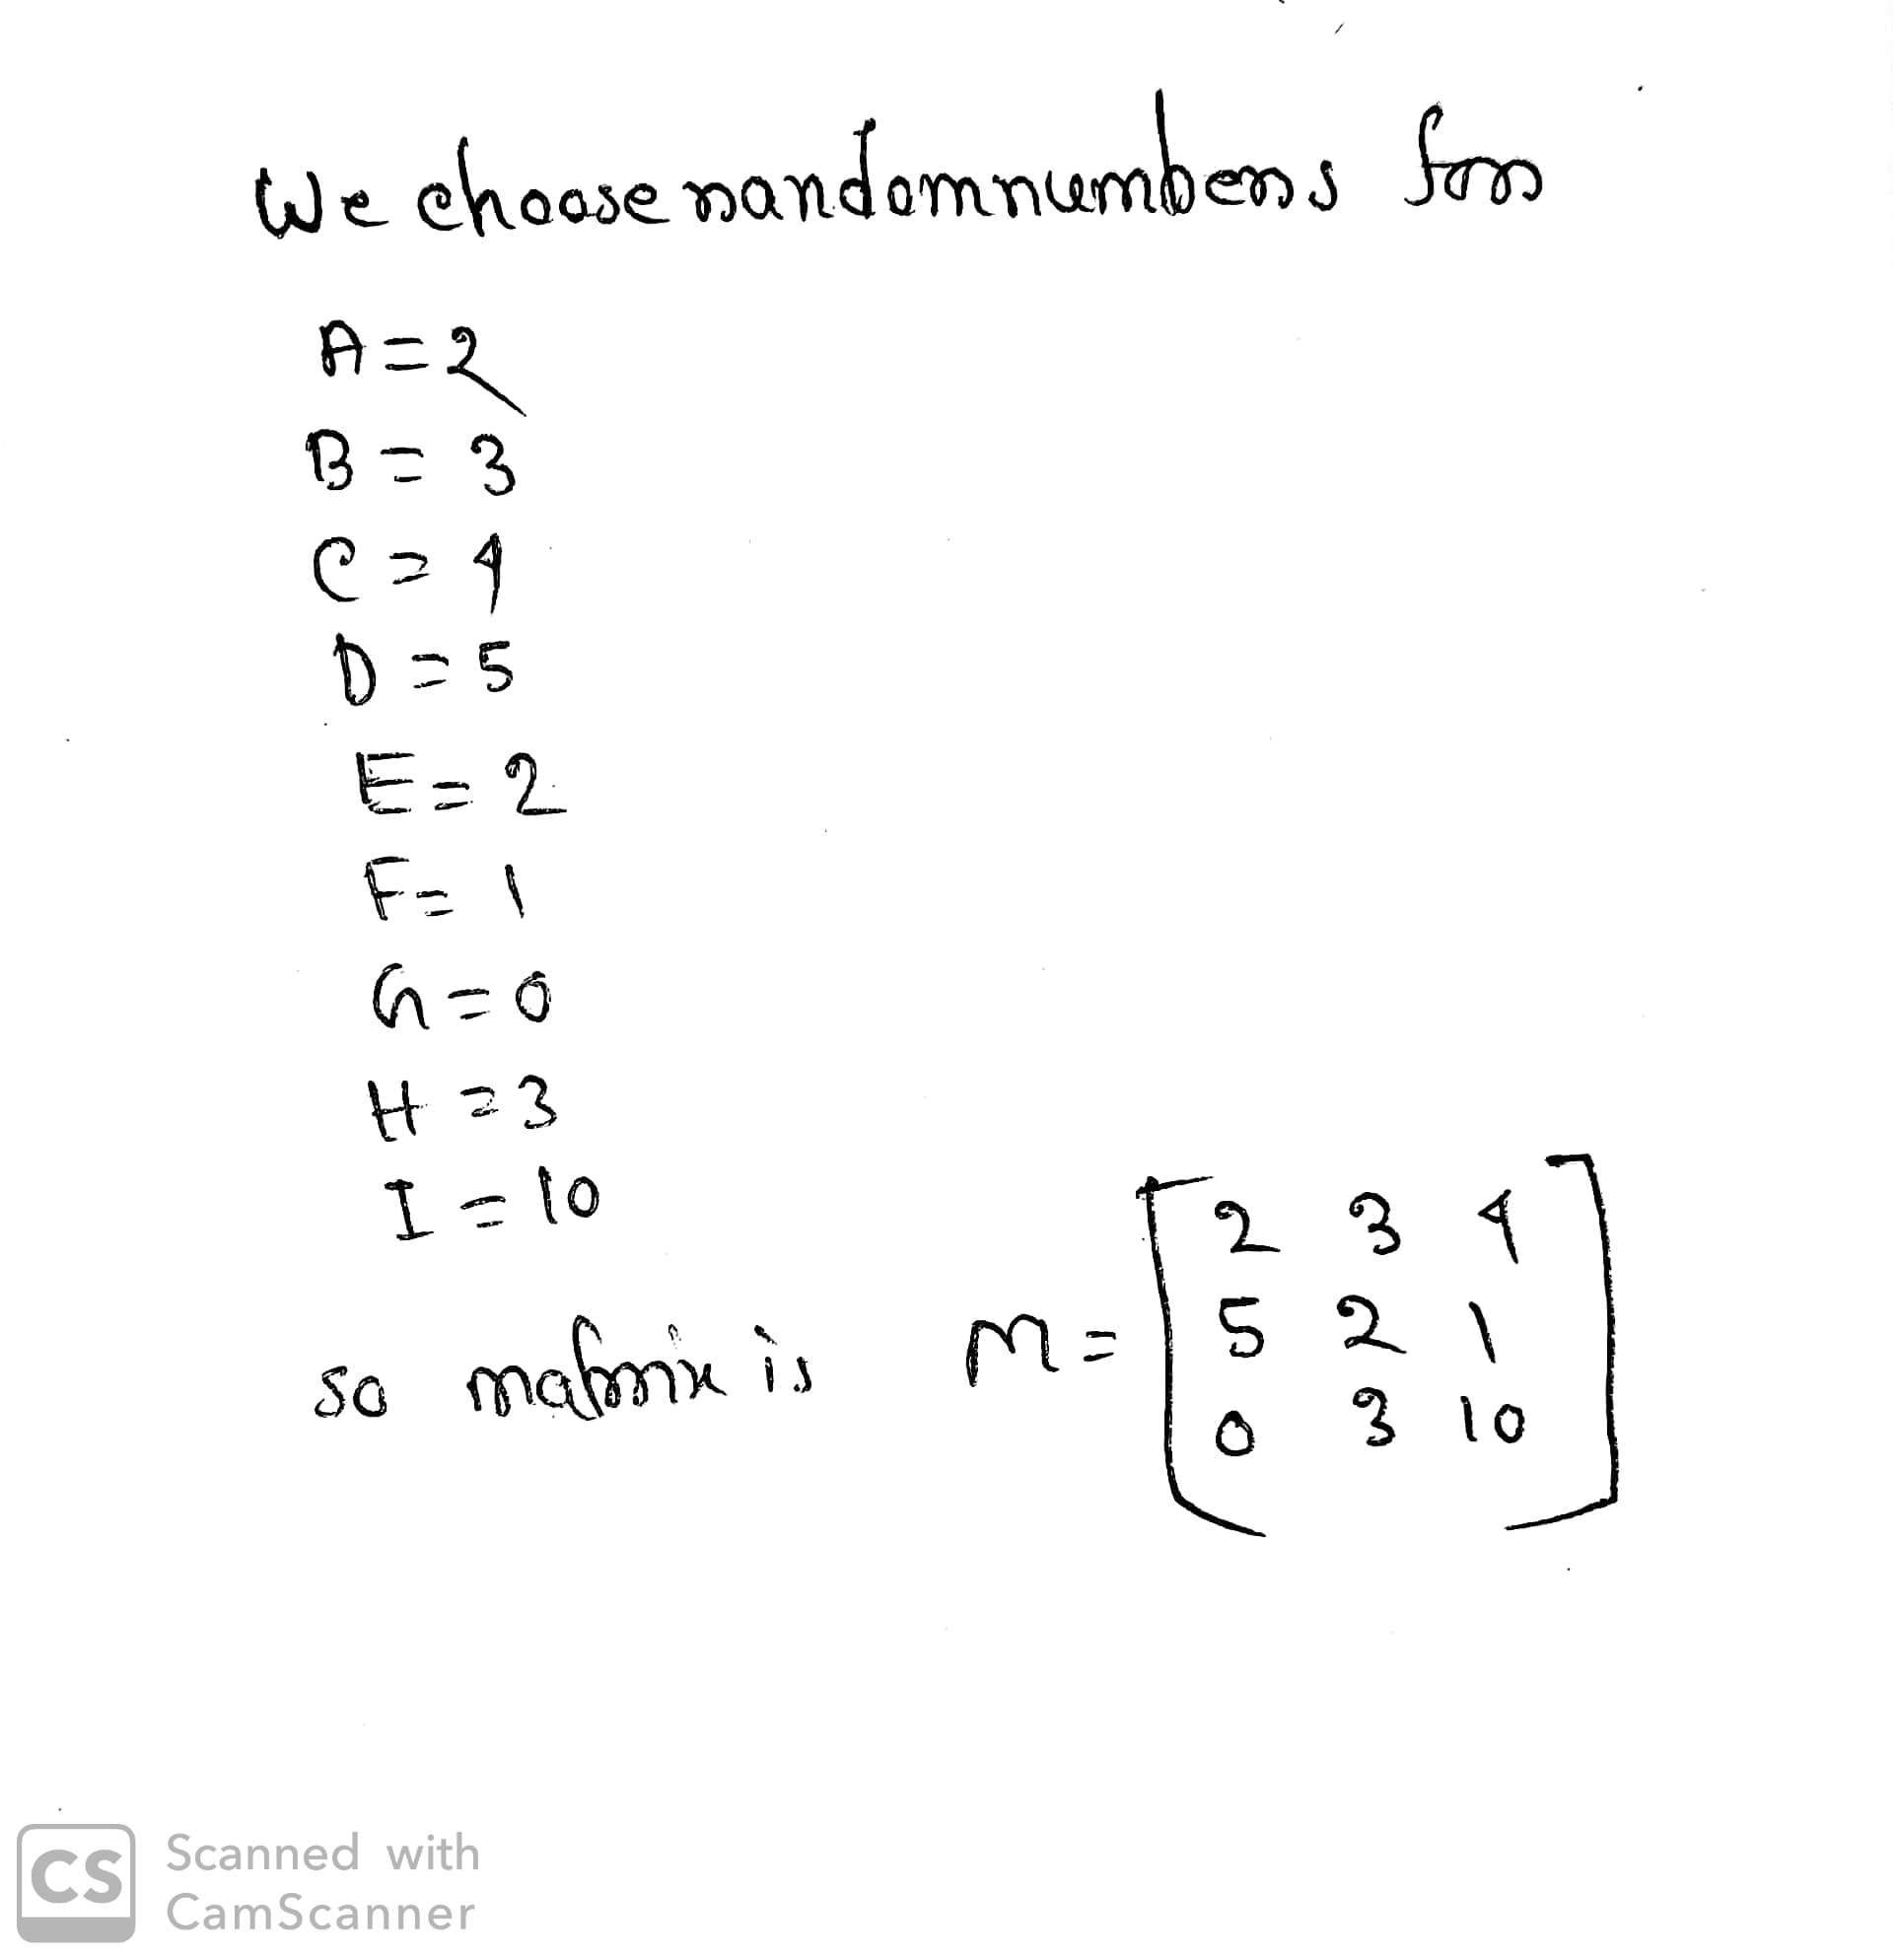 We choose random numbers for
A = 2
B = 3
C = 4
D = 5
E = 2
F = 1
G = 0
H = 3
I = 10
so matrix is M = [2 3 4
5 2 1
0 3 10]
CS Scanned with
CamScanner